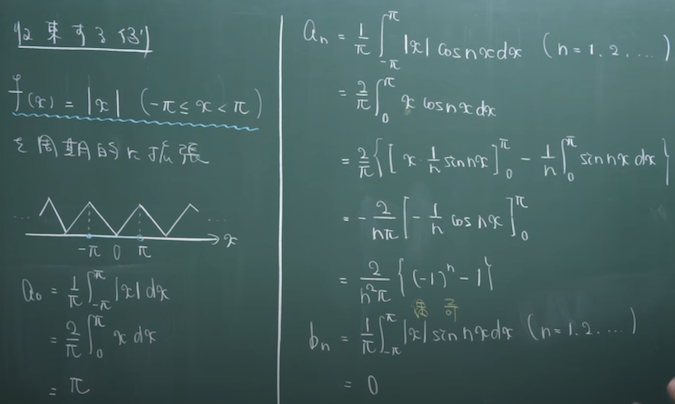 収束する例
f(x) = |x| (-π ≦ x < π)
を周期的に拡張
... ... x
-π 0 π
a₀ = 1/π ∫_{-π}^{π} |x| dx
= 2/π ∫_0^π x dx
= π
aₙ = 1/π ∫_{-π}^{π} |x| cos nx dx (n = 1, 2, ...)
= 2/π ∫_0^π x cos nx dx
= 2/π { [ x 1/n sin nx ]_0^π - 1/n ∫_0^π sin nx dx }
= - 2/(nπ) [ - 1/n cos nx ]_0^π
= 2/(n²π) { (-1)ⁿ - 1 }
偶 奇
bₙ = 1/π ∫_{-π}^{π} |x| sin nx dx (n = 1, 2, ...)
= 0